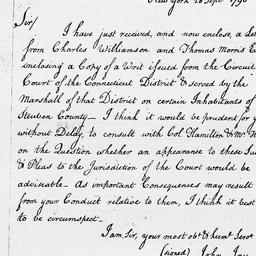 New York 28 Sept 1796
Sir/
I have just received, and now enclose, a Let
from Charles Williamson and Thomas Morris E
enclosing a Copy of a Writ issued from the Circuit
Court of the Connecticut District & served by the
Marshall of that District on certain Inhabitants of
Steuben County - I think it would be prudent for y
without Delay, to consult with Col. Hamilton & Mr. H
on the Question whether an appearance to these Su
& Pleas to the Jurisdiction of the Court would be
adviseable - As important Consequences may result
from your Conduct relative to them, I think it best
to be circumspect -
I am, Sir, your most obt. & huml. Servt
(signed) John Jay